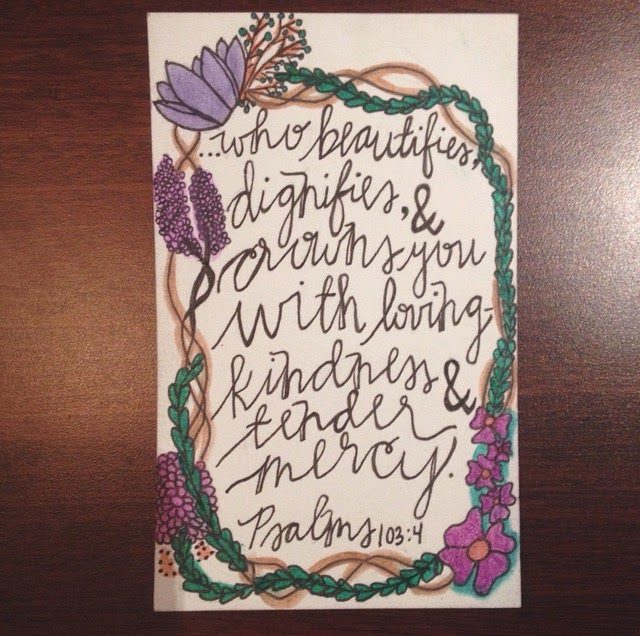 ...who beautifies,
dignifies, &
crowns you
with loving-
kindness &
tender
mercy.
Psalms 103:4